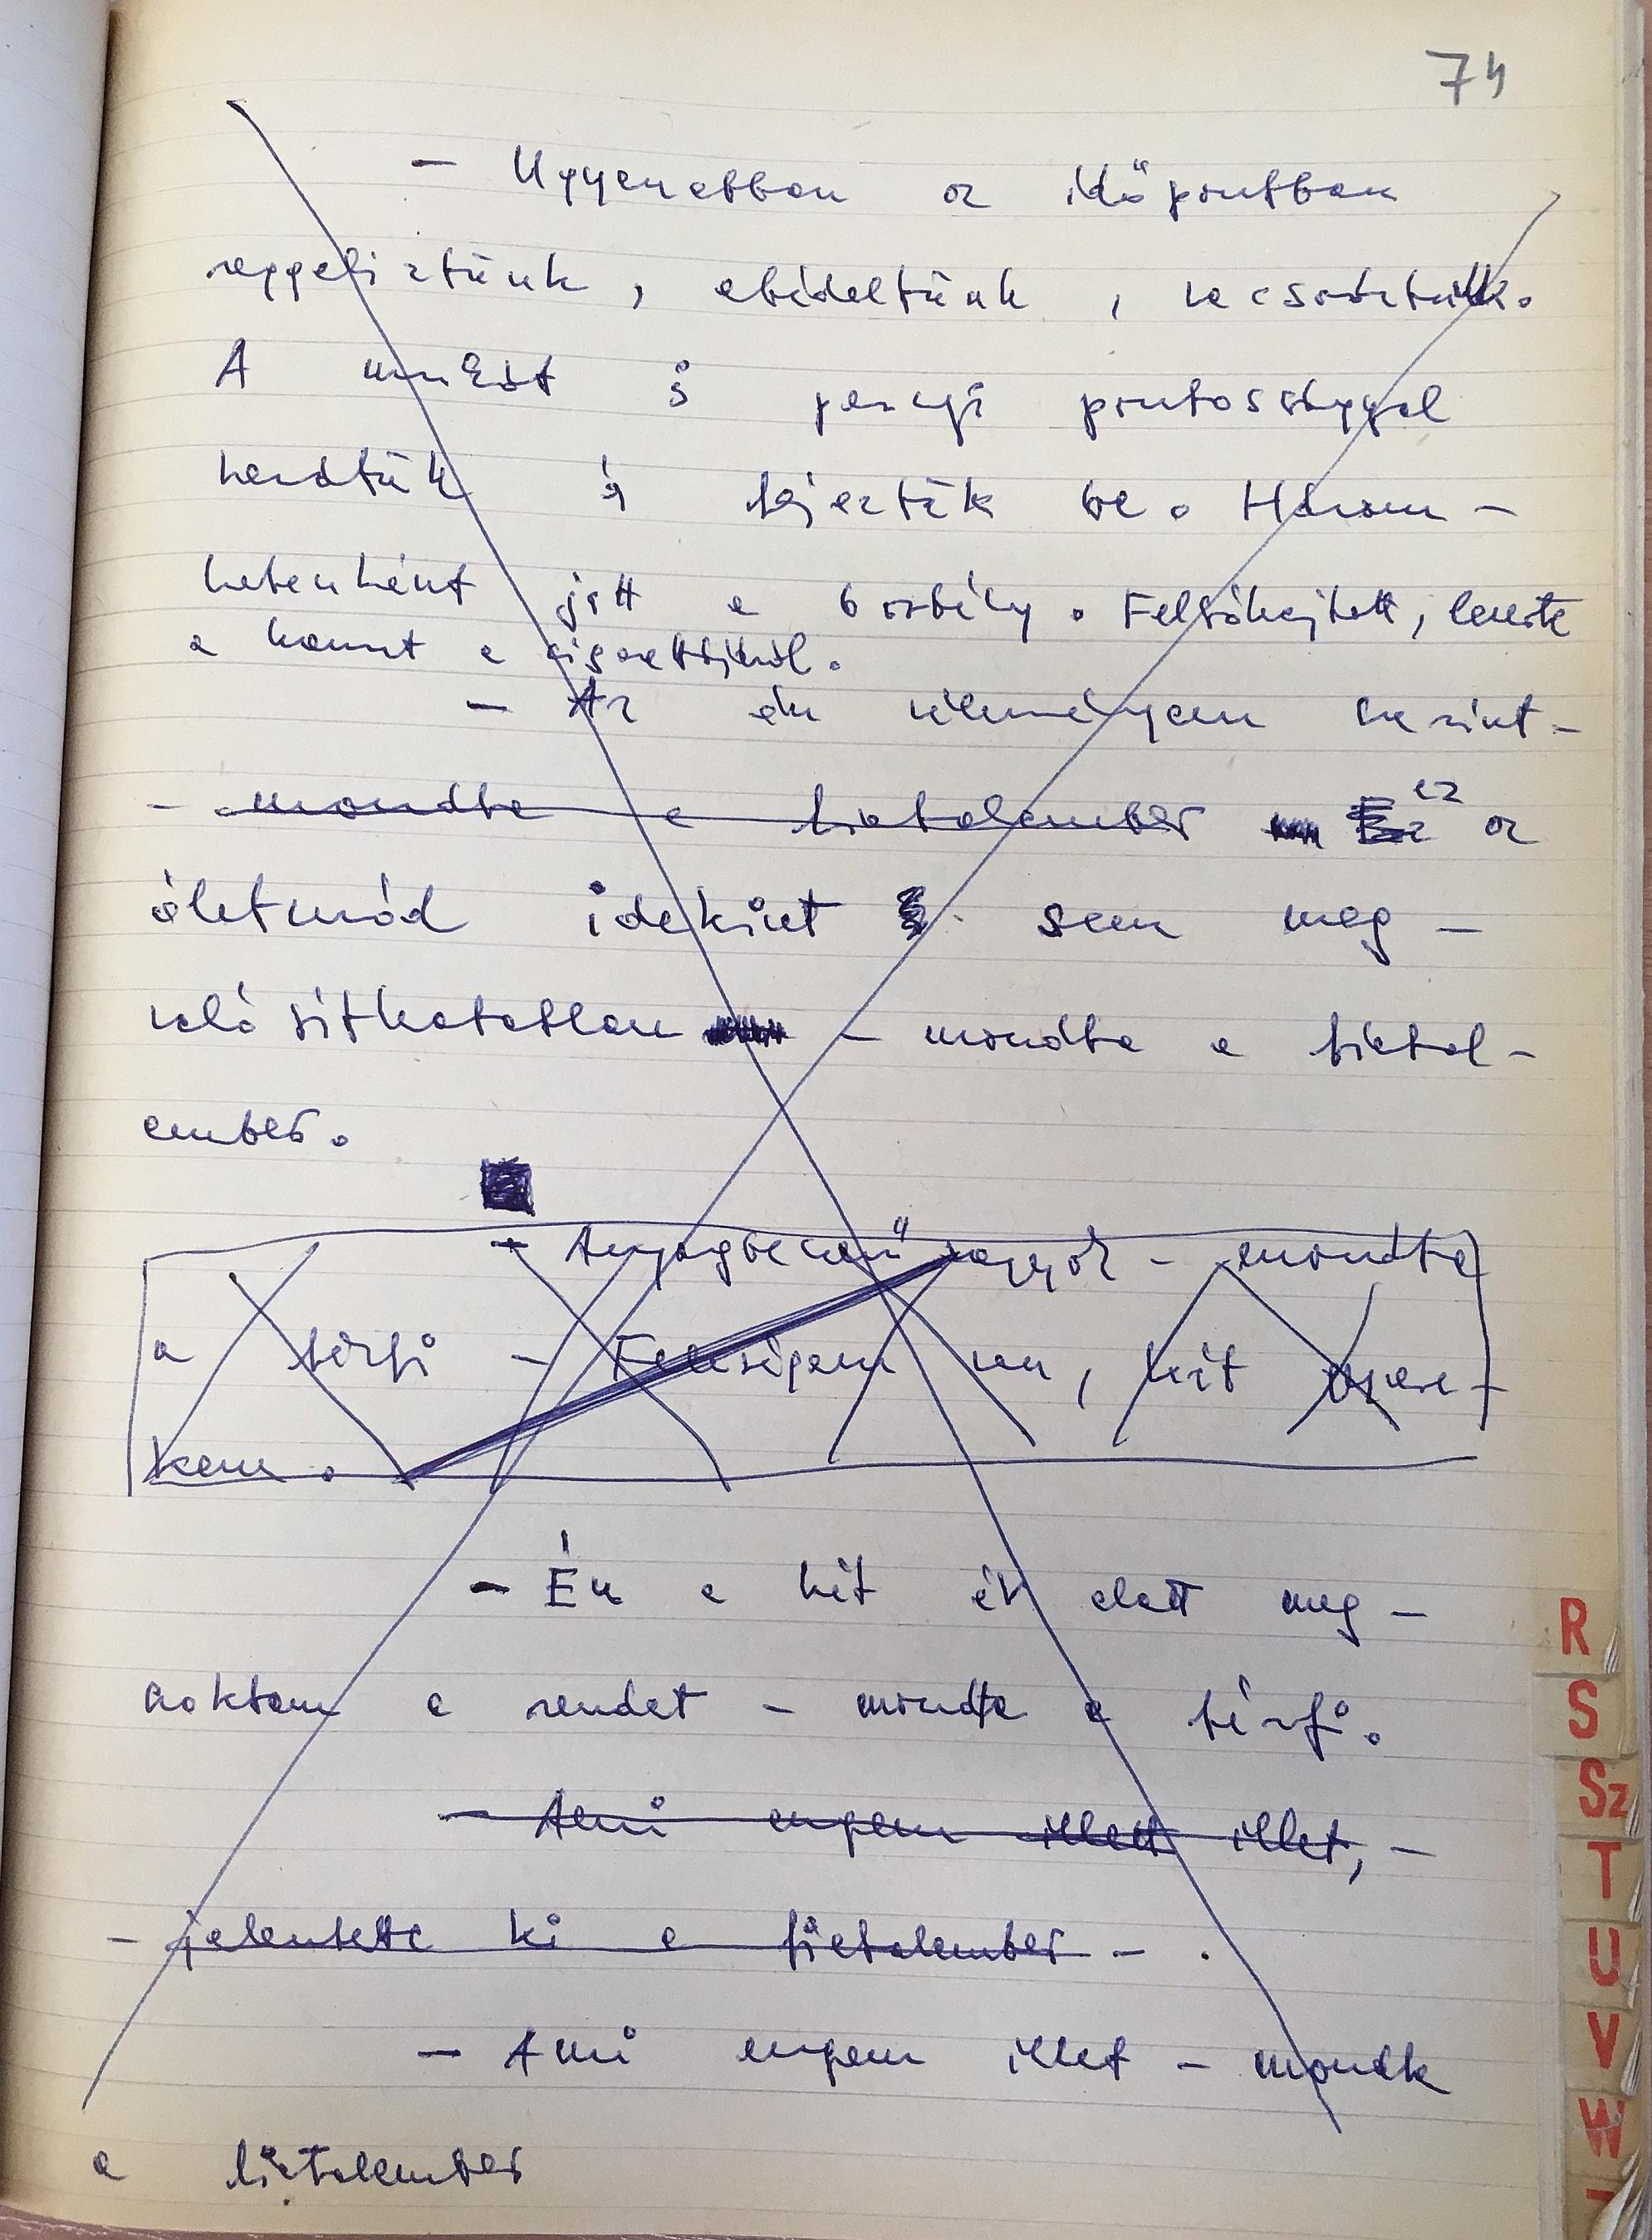 74
- Ugyanabban az időpontban
reggeliztünk, ebédeltünk, vacsoráztunk.
A munkát is percnyi pontossággal
kezdtük és fejeztük be. Három-
hetenként jött a borbély. Felsóhajtott, leverte
a hamut a cigarettájáról.
- Az én véleményem szerint -
- mondta a fiatalember ez az
életmód idekint sem meg-
valósíthatatlan - mondta a fiatal-
ember.
- Anyagbeszerző vagyok - mondta
a férfi - Feleségem van, két gyere-
kem.
- Én a hét év alatt meg-
szoktam a rendet - mondta a férfi.
- Ami engem illett illet, -
- jelentette ki a fiatalember - .
- Ami engem illet - mondta
a fiatalember
R
S
Sz
T
U
V
W